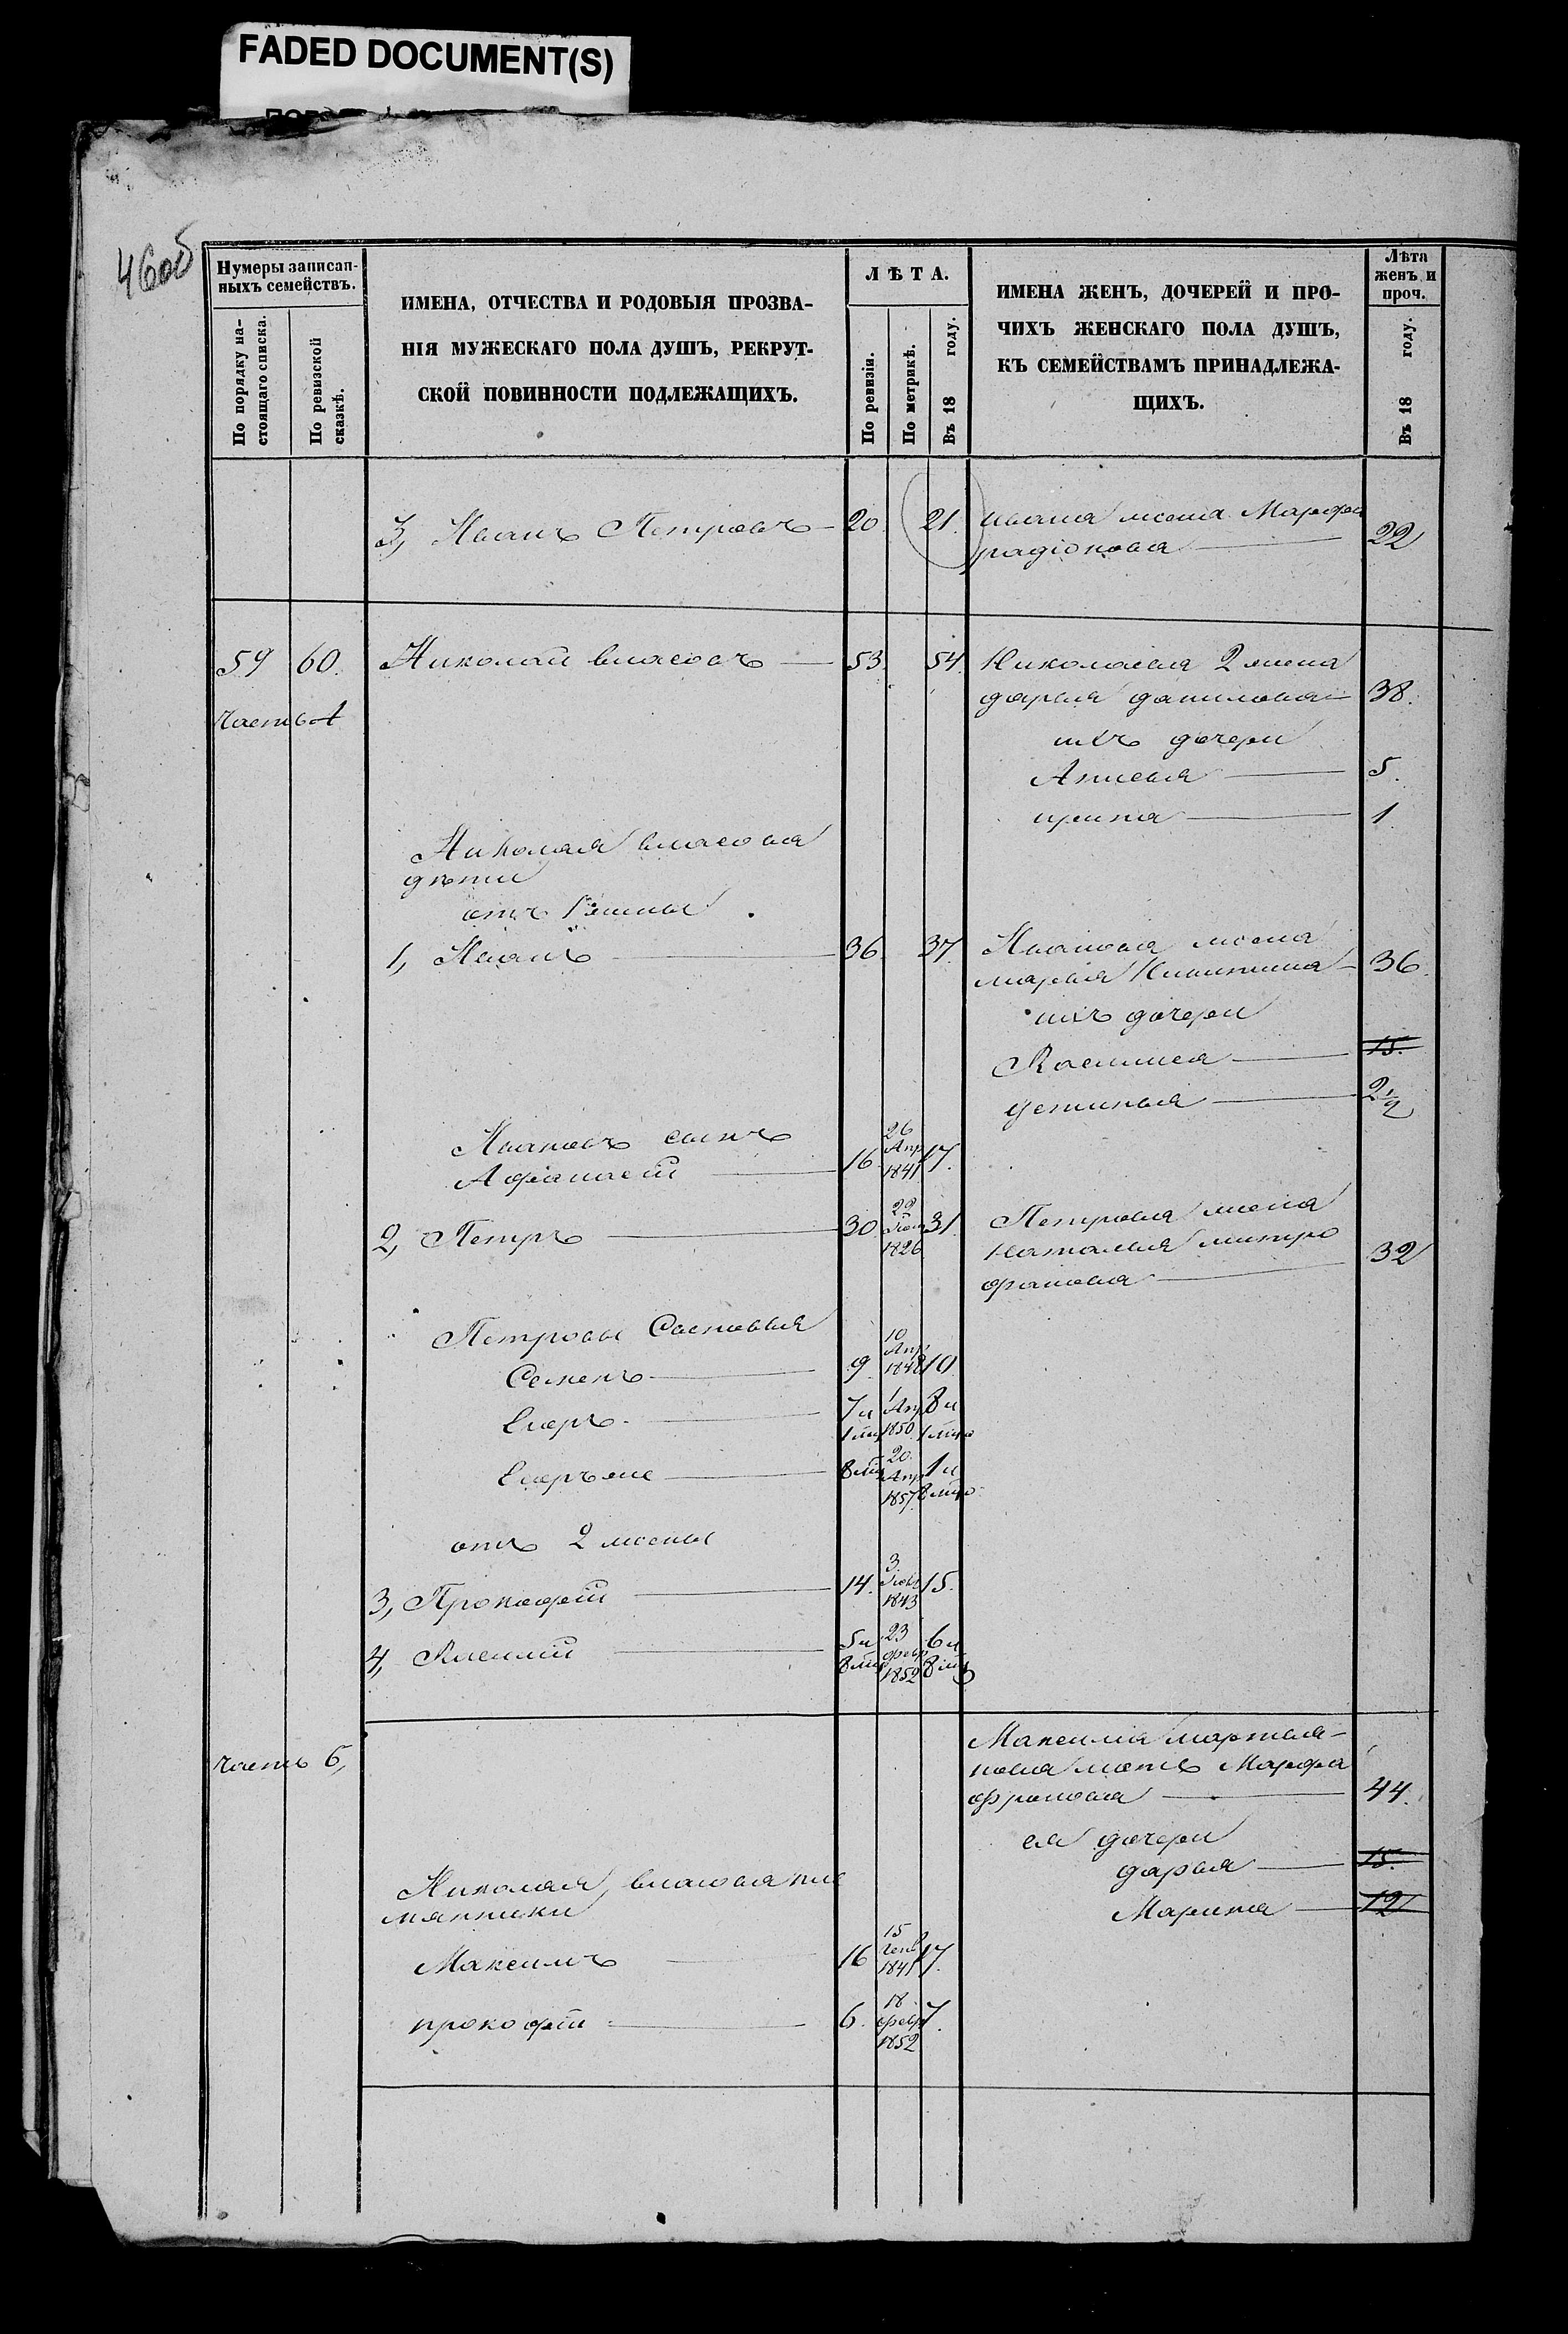 FADED DOCUMENT(S)
460об
Нумеры записан-
ныхъ семействъ.
По порядку на-
стоящаго списка.
По ревизской
сказкѣ.
ИМЕНА, ОТЧЕСТВА И РОДОВЫЯ ПРОЗВА-
НІЯ МУЖЕСКАГО ПОЛА ДУШЪ, РЕКРУТ-
СКОЙ ПОВИННОСТИ ПОДЛЕЖАЩИХЪ.
ЛѢТА.
По ревизіи.
По метрикѣ.
Въ 18 году.
ИМЕНА ЖЕНЪ, ДОЧЕРЕЙ И ПРО-
ЧИХЪ ЖЕНСКАГО ПОЛА ДУШЪ,
КЪ СЕМЕЙСТВАМЪ ПРИНАДЛЕЖА-
ЩИХЪ.
Лѣта
женъ и
проч.
Въ 18 году.
3, Иванъ Петровъ 20. 21. Ивана жена Марфа
радіонова 22
59 60. Николай власовъ 53. 54. Николаева 2 жена
часть А дарья данилова 38.
ихъ дочери
Анисья 5.
ирина 1
Николая власова
дѣти
отъ 1 жены
1, Иванъ 36. 37. Иванова жена
марья Никитина 36.
ихъ дочери
15.
устинья 2½
Ивановъ сынъ
Афанасій 16 26 Апр 1841 17.
2, Петръ 30 29 1826 31. Петрова жена
Наталья митро
фанова 32
Петровы Сыновья
Семенъ 9 10 Апр 1848 10
Егоръ 7 л 1 мѣ 1 Апр 1850 8 л 1 мѣс
Егоръ же 8 мѣ 20 Апр 1857 1 л 8 мѣс
отъ 2 жены
3, Прокофій 14. 3 1843 15.
4, 5 л 8 мѣ 23 февр 1852 6 л 8 мѣ
часть б, Максима мартыя-
нова мать Марфа
фролова 44.
ея дочери
дарья 15.
Марина 12
Николая власова пле
мянники
Максимъ 16 15 генв 1841 17.
прокофій 6. 18 февр 1852 7.